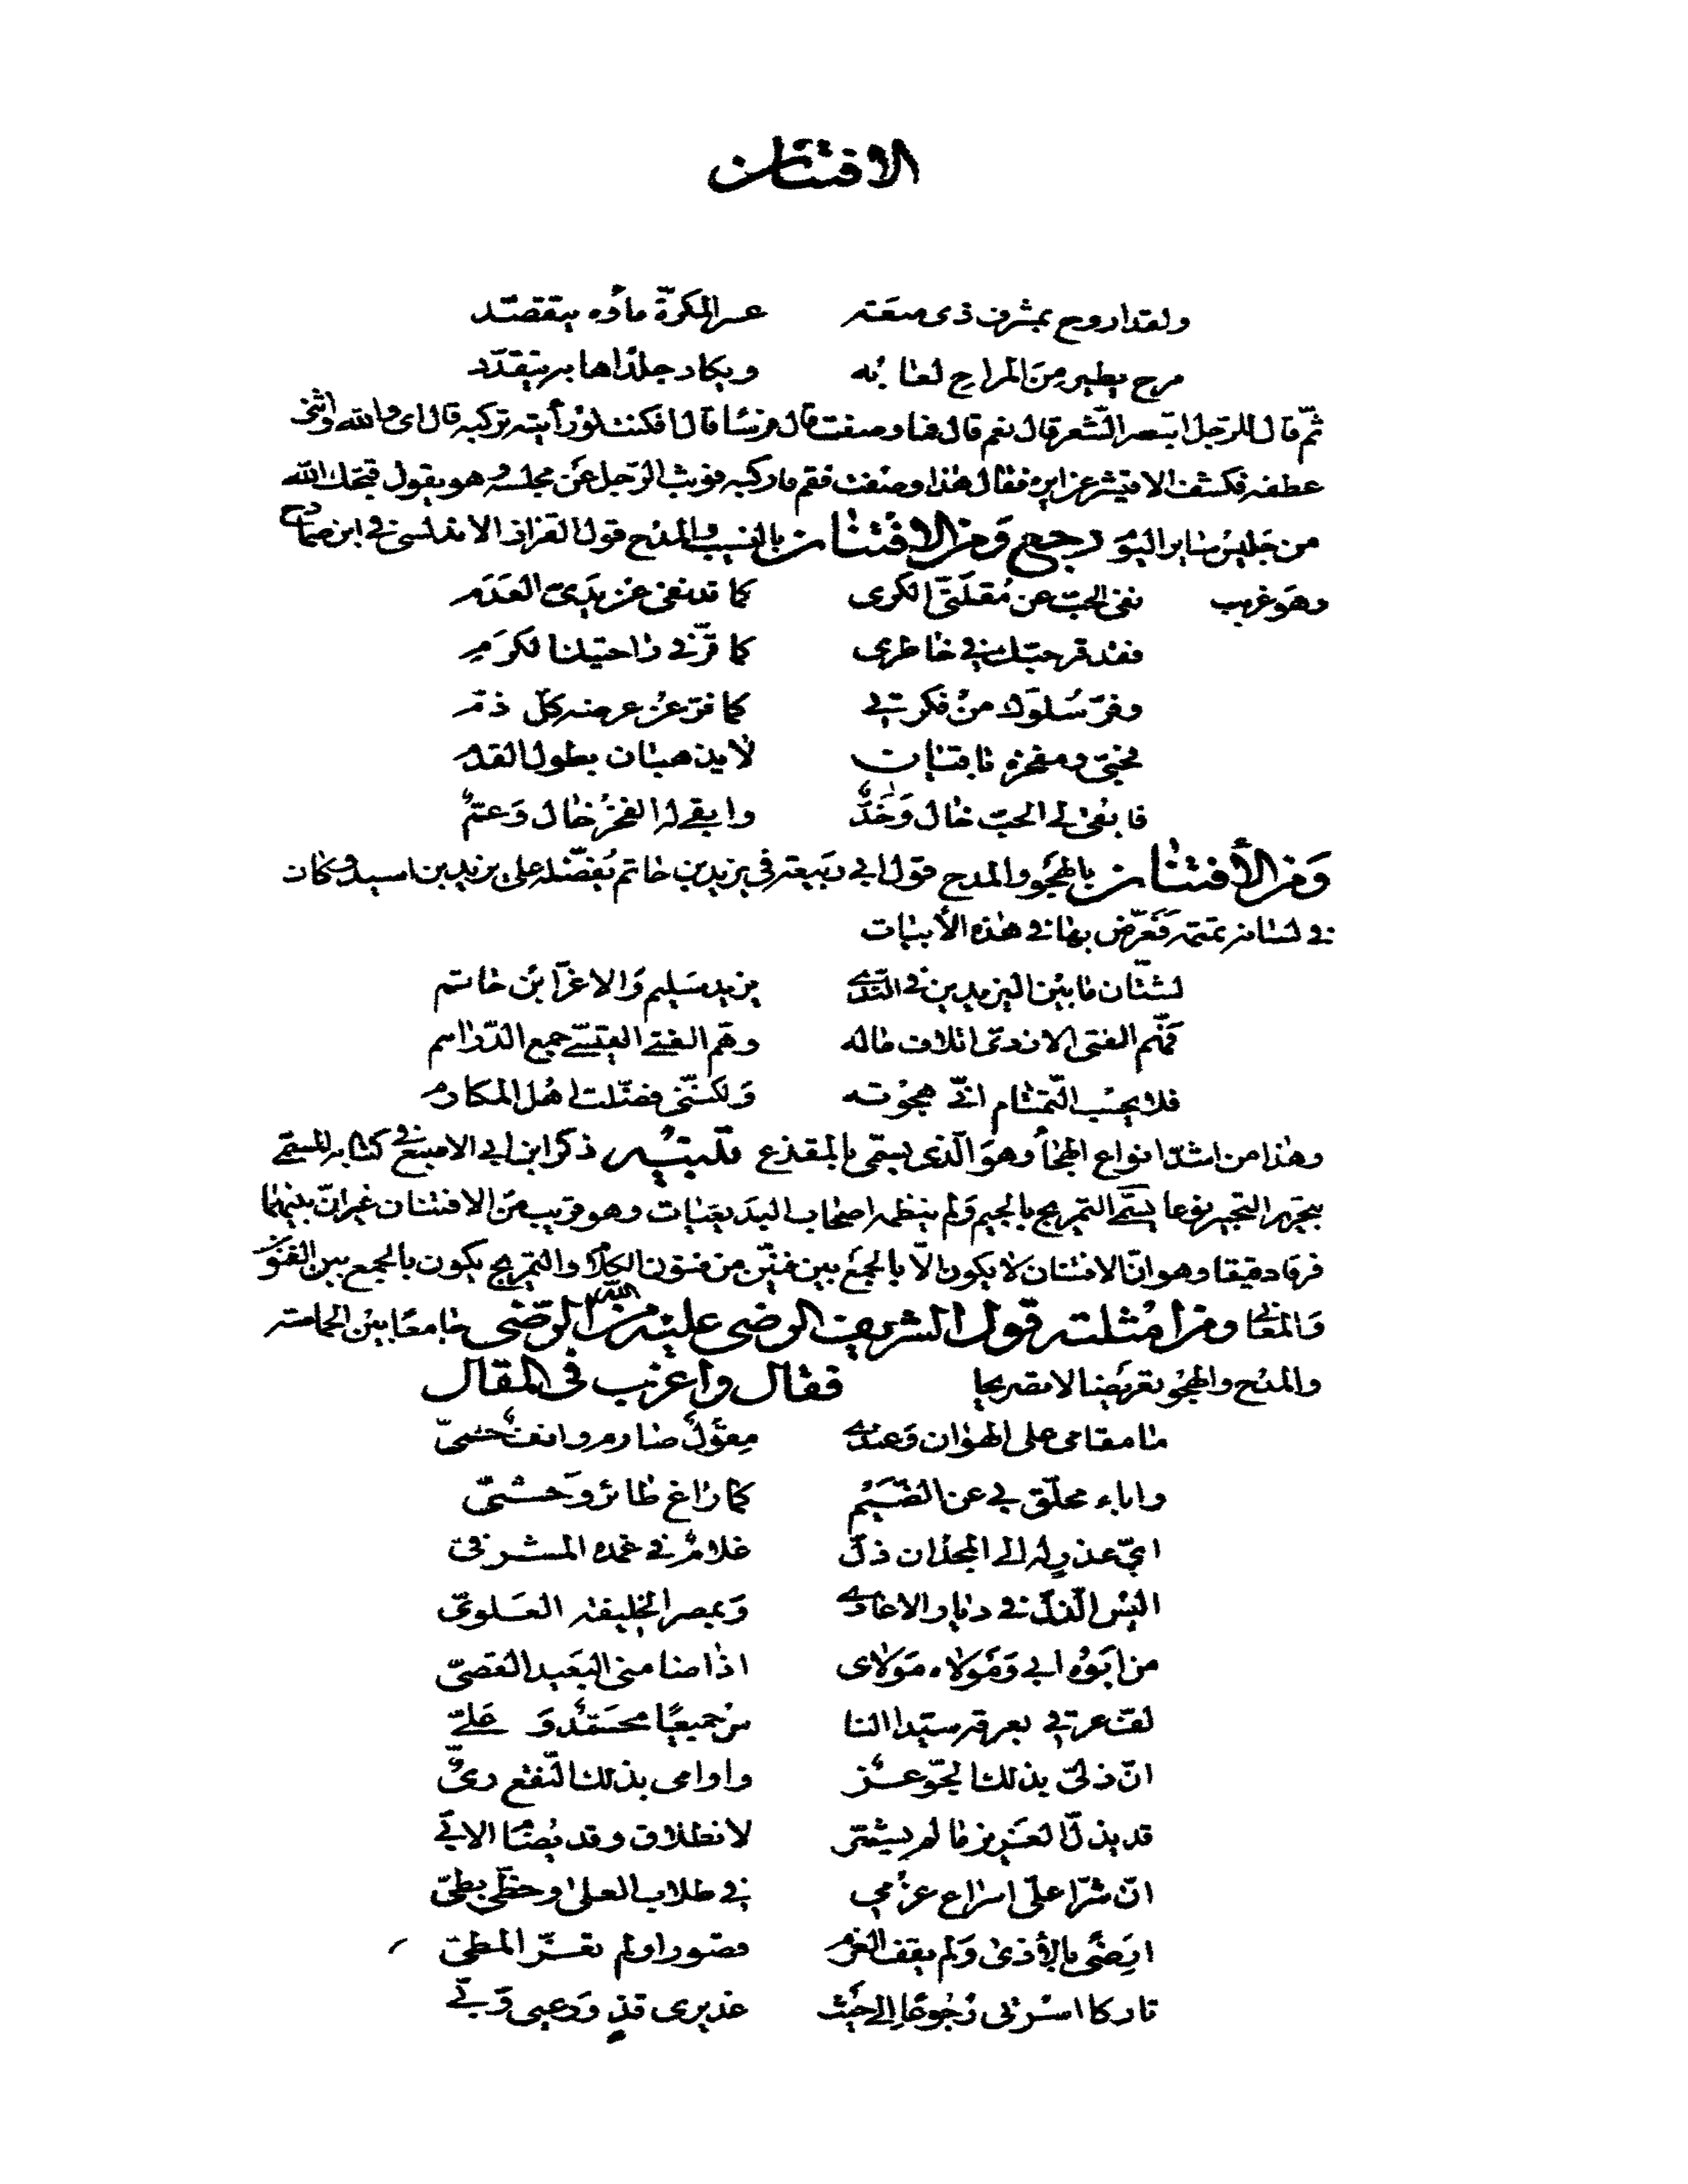 الافتنان
ولقد اروح بمشرف ذى ميعة عسر المكرّة ماؤه يتفصّد
مرح يطير من المراح لعابه ويكاد جلد اهابه يتقدّد
ثمّ قال للرّجل اتبصر الشّعر قال نعم قال فما وصفت قال فرسا قال افكنت لو رأيته تركبه قال اى والله واثنى
عطفه فكشف الاقيشر عن ايره فقال هذا وصفت فقم فاركبه فوثب الرّجل عن مجلسه وهو يقول قبّحك الله
من جليس سائر اليوم رجع ومن الافتنان بالنسيب والمدح قول القزاز الاندلسى فى ابن صمادح
وهو غريب نفى الحبّ عن مُقلَتىّ الكرى كما قد نفى عن يدىّ العدم
فقد قر حبّك فى خاطرى كما قرّ فى راحتيك الكرم
وفرّ سُلوّك من فكرتى كما فرّ عن عرضه كلّ ذم
فحبّى ومفخره باقيان لا يذهبان بطول القدم
فابقى لى الحبّ خال وخدّ وابقى له الفخرُ خال وعمّ
ومن الأفتنان بالهجو والمدح قول ابى ربيعة فى يزيد بن حاتم يُفضّله على يزيد بن اسيد وكان
فى لسانه تمتمة فعرّض بها فى هذه الأبيات
لشتّان ما بين اليزيدين فى النّدى يزيد سليم والاغرّ ابن حاتم
فهّم الفتى الازدى اتلاف ماله وهمّ الفتى القيسى جمع الدّراهم
فلا يحسب التّمتام انّى هجوته ولكنّنى فضّلت اهل المكارم
وهذا من اشدّ انواع الهجاء وهو الّذى يسمّى بالمقذع تنبيه ذكر ابن ابى الاصبع فى كتابه المسمّى
بتحرير التحبير نوعا يسمّى التمزيج بالجيم ولم ينظمه اصحاب البديعيات وهو قريب من الافتنان غير انّ بينهما
فرقا دقيقا وهو انّ الافتنان لا يكون الّا بالجمع بين فنيّن من فنون الكلام والتمزيج يكون بالجمع بين الفنون
والمعانى ومن امثلته قول الشريف الرضى عليه من الله الرّضى جامعًا بين الحماسة
والمدح والهجو تعريضا لا تصريحا فقال واغرب فى المقال
ما مقامى على الهوان وعندى مِقوَلٌ صارم وانفٌ حمىّ
واباء محلّق بى عن الضّيم كما راغ طائر وحشىّ
اىّ عذر له الى المجد ان ذلّ غلامٌ فى غمده المشرفى
البس الذلّ فى ديار الاعادى وبمصر الخليفة العلوىّ
من ابوه ابى ومولاه مولاى اذا ضامنى البعيد القصىّ
لفّ عرقى بعرقه سيّدا النا س جميعًا محمّد و علىّ
انّ ذلّى بذلك الجوّ عزّ واوامى بذلك النّقع رىّ
قد يذلّ العزيز ما لم يشمّر لانطلاق وقد يُضام الابىّ
انّ شرّا علىّ اسراع عزمى فى طلاب العلى وحظّى بطىّ
ارضى بالأذى ولم يقف العزم قصورا ولم تعزّ المطىّ
تاركا اسرتى رجوعا الى حيث غديرى قذٍ ورعيى وبىّ